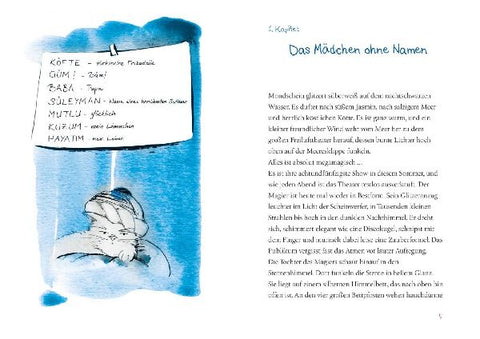 KÖFTE – türkische Frikadelle
GÜM! – Zäng!
BABA – Papa
SÜLEYMAN – Name eines berühmten Sultans
MUTLU – glücklich
KUZUM – mein Lämmchen
HAYATIM – mein Leben
1. Kapitel
Das Mädchen ohne Namen
Mondschein glitzert silberweiß auf dem nachtschwarzen
Wasser. Es duftet nach süßem Jasmin, nach salzigem Meer
und herrlich köstlichen Köfte. Es ist ganz warm, und ein
kleiner freundlicher Wind weht vom Meer her zu dem
großen Freilufttheater herauf, dessen bunte Lichter hoch
oben auf der Meeresklippe funkeln.
Alles ist absolut megamagisch ...
Es ist ihre achtundfünfzigste Show in diesem Sommer, und
wie jeden Abend ist das Theater restlos ausverkauft. Der
Magier ist heute mal wieder in Bestform. Sein Glitzeranzug
leuchtet im Licht der Scheinwerfer, in Tausenden kleinen
Strahlen bis hoch in den dunklen Nachthimmel. Er dreht
sich, schimmert elegant wie eine Discokugel, schnipst mit
dem Finger und murmelt dabei leise eine Zauberformel. Das
Publikum vergisst fast das Atmen vor lauter Aufregung.
Die Tochter des Magiers schaut hinauf in den
Sternenhimmel. Dort funkeln die Sterne in hellem Glanz.
Sie liegt auf einem silbernen Himmelbett, das nach oben hin
offen ist. An den vier großen Bettpfosten wehen hauchdünne
5